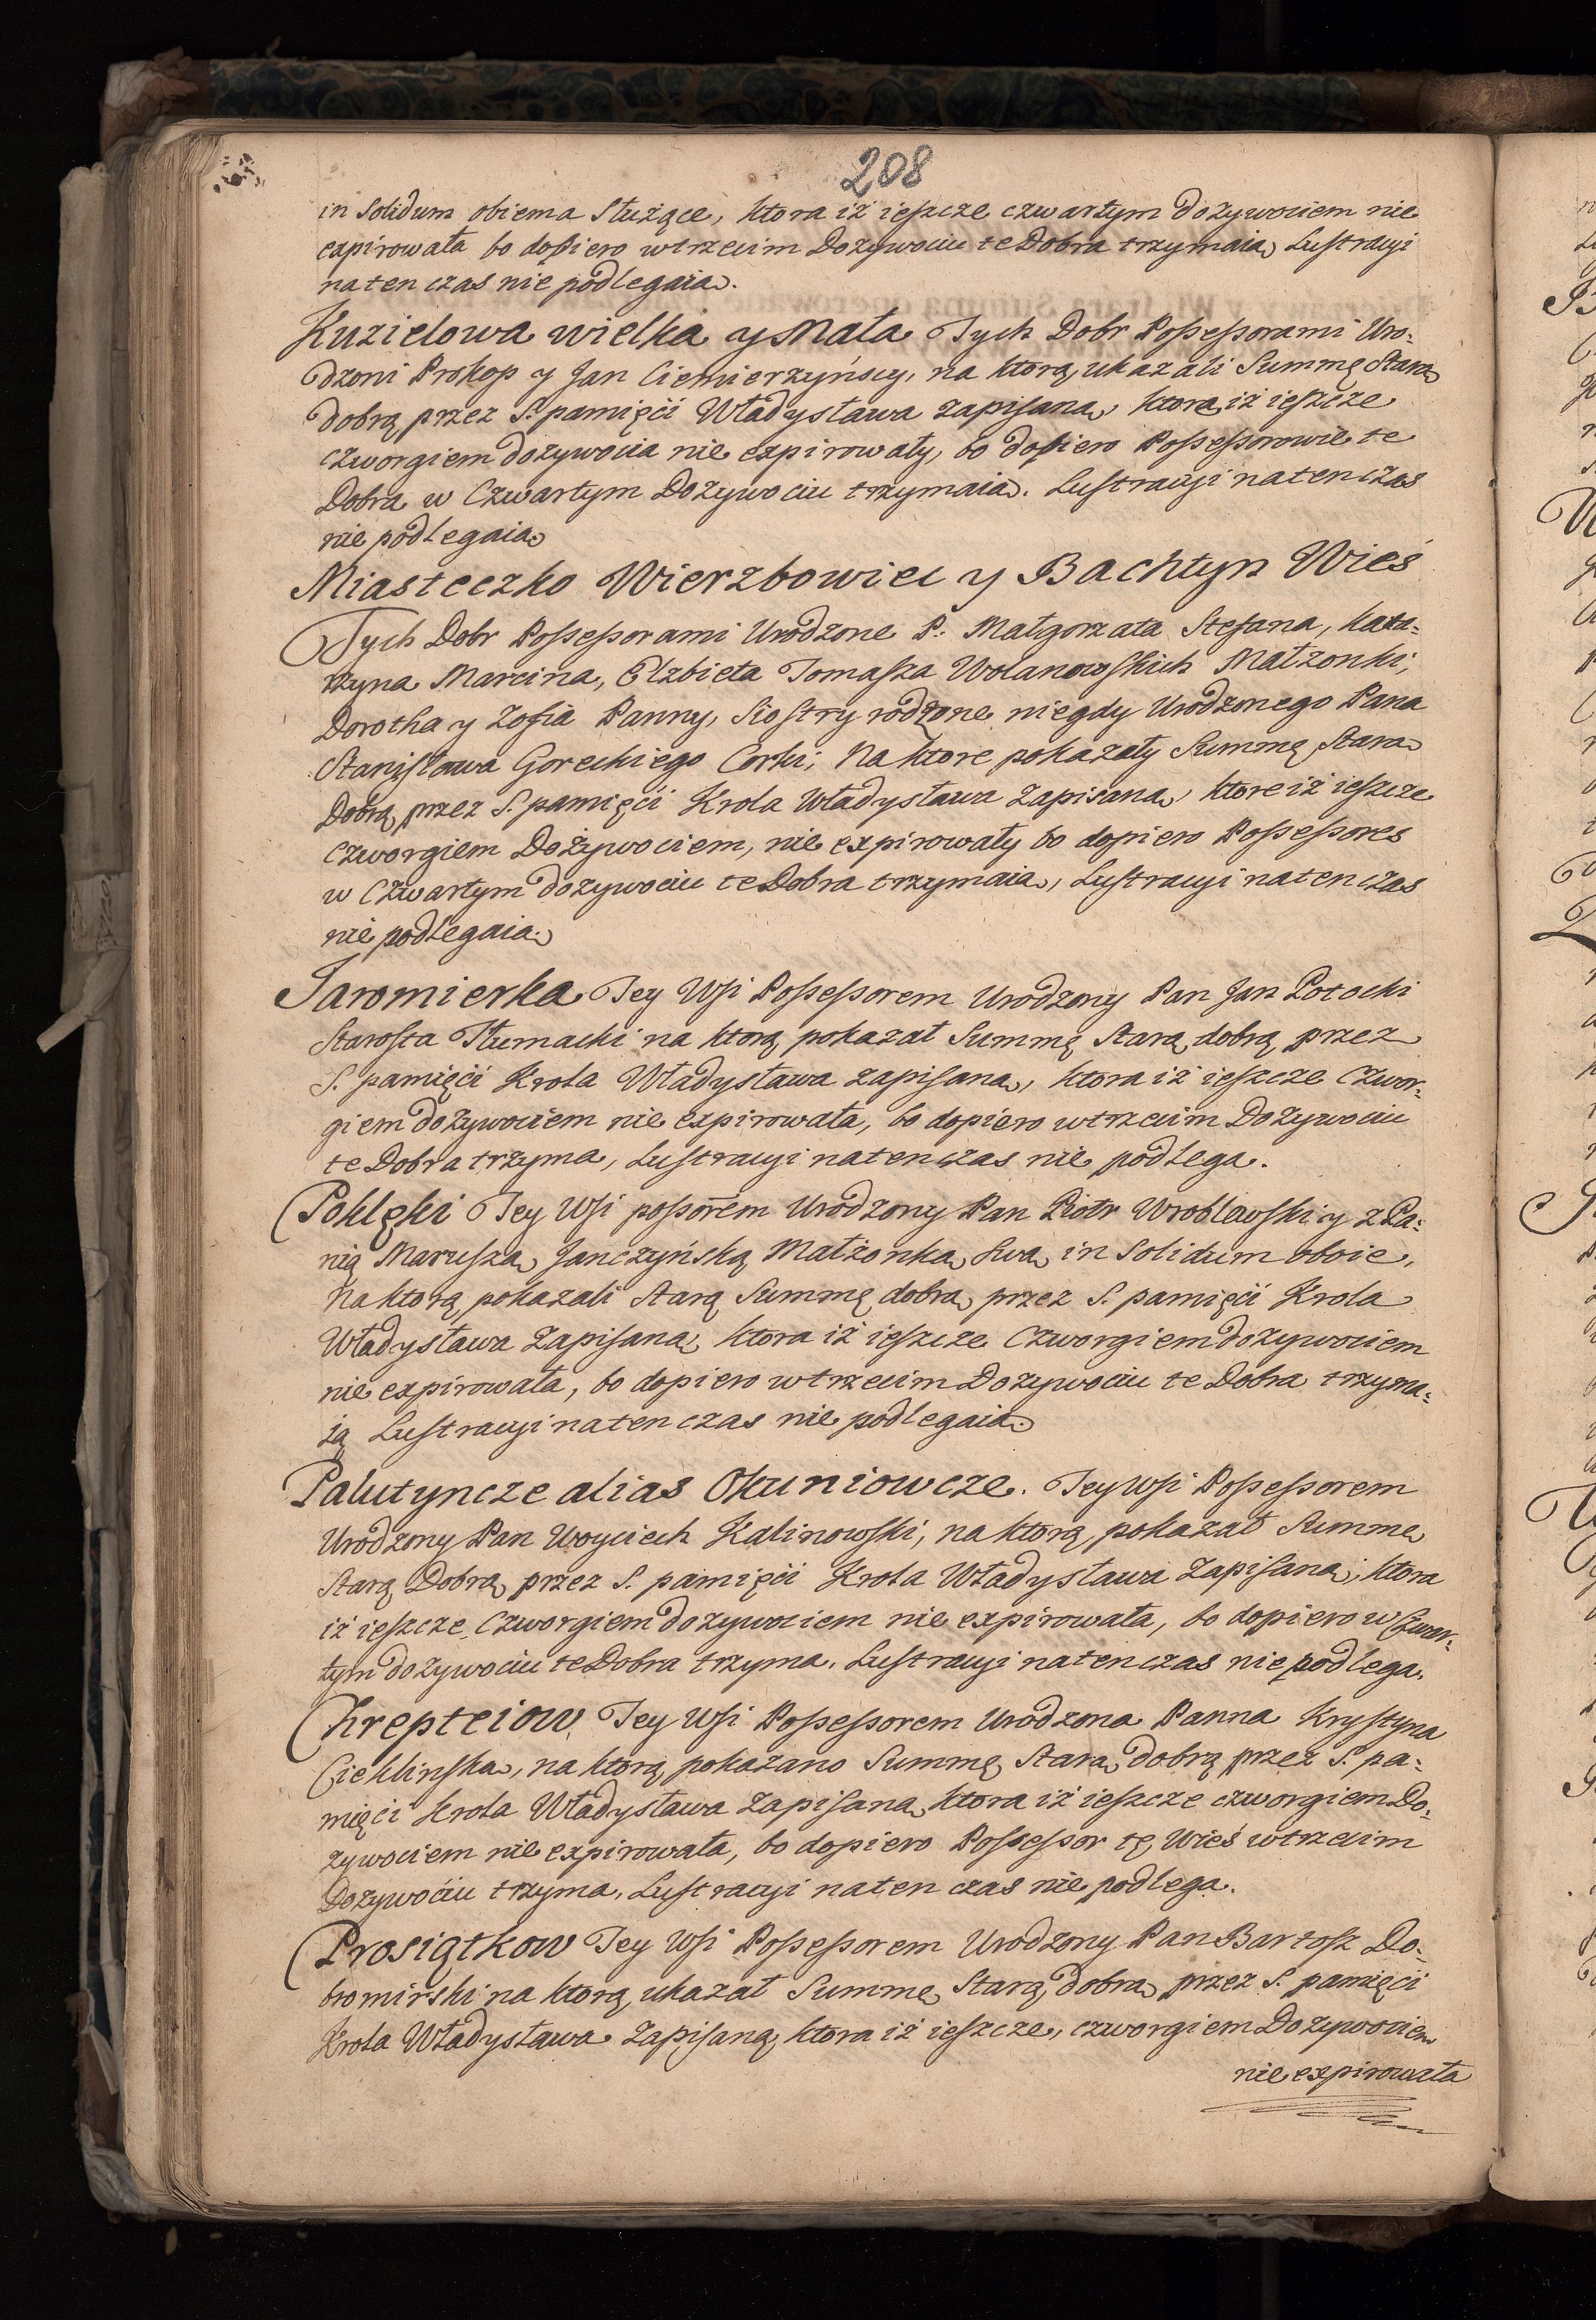 208
in Solidum obiema służące, ktora iż ieszcze czwartym dożywociem nie
expirowała bo dopiero w trzecim Dożywociu te Dobra trzymaią Lustracyi
na ten czas nie podlegaią.
Kuzielowa wielka y Mała Tych Dobr Possessorami Uro-
dzoni Prokop y Jan Ciemierzyńscy, na ktorą ukazali Summę Starą
dobrą przez S. pamięći Władysława zapisaną, ktorą iż ieszcze
czworgiem dożywocia nie expirowały, bo dopiero Possessorowie te
Dobra w Czwartym Dożywociu trzymaią. Lustracyi na ten czas
nie podlegaią
Miasteczko Wierzbowiec y Bachtyn Wieś
Tych Dobr Possessorami Urodzone P. Małgorzata Stefana, Kata-
rzyna Marcina, Elzbieta Tomasza Wolanowskich Małzonki,
Dorotha y Zofia Panny, Siostry rodzone niegdy Urodzonego Pana
Stanisława Goreckiego Corki; Na ktore pokazały Summę Starą
Dobrą przez S. pamięći Krola Władysława zapisaną, ktore iż ieszcze
czworgiem Dożywociem, nie expirowały bo dopiero Possessores
w Czwartym dożywociu te Dobra trzymaią, Lustracyi na ten czas
nie podlegaią
Jaromierka Tey Wsi Possessorem Urodzony Pan Jan Potocki
Starosta Tłumacki na ktorą pokazał Summę Starą dobrą przez
S. pamięći Krola Władysława zapisaną, ktora iż ieszcze Czwor-
giem dożywociem nie expirowała, bo dopiero w trzecim Dożywociu
te Dobra trzyma, Lustracyi na ten czas nie podlega.
Poklęki Tey Wsi possorem Urodzony Pan Piotr Wroblewski y z Pa-
nią Maruszą Janczyńską Małżonką swą in Solidum oboie,
na ktorą pokazali starą Summę dobrą przez S. pamięći Krola
Władysława zapisaną ktora iż ieszcze Czworgiem dożywociem
nie expirowała, bo dopiero w trzecim Dożywociu te Dobra trzyma-
ią Lustracyi na ten czas nie podlegaią
Palutyncze alias Okuniowcze. Tey Wsi Possessorem
Urodzony Pan Woyciech Kalinowski, na ktorą pokazał Summę
starą Dobrą przez S. pamięći Krola Władysława Zapisaną, ktora
iż ieszcze Czworgiem dożywociem nie expirowała, bo dopiero w Czwar-
tym dożywociu te Dobra trzyma, Lustracyi na ten czas nie podlega.
Krepteiow Tey Wsi Possessorem Urodzona Panna Krystyna
Ciehlinska, na ktorą pokazano Summę Starą dobrą przez S. pa-
mięći Krola Władysława zapisaną ktora iż ieszcze czworgiem Do-
żywociem nie expirowała, bo dopiero Possessor tę Wieś w trzecim
Dożywoćiu trzyma, Lustracyi na ten czas nie podlega.
Prosiątkow Tey Wsi Possessorem Urodzony Pan Bartosz Do-
bromirski na ktorą ukazał Summę Starą dobrą przez S. pamięći
Krola Władysława Zapisaną ktora iż ieszcze, czworgiem Dożywociem
nie expirowała